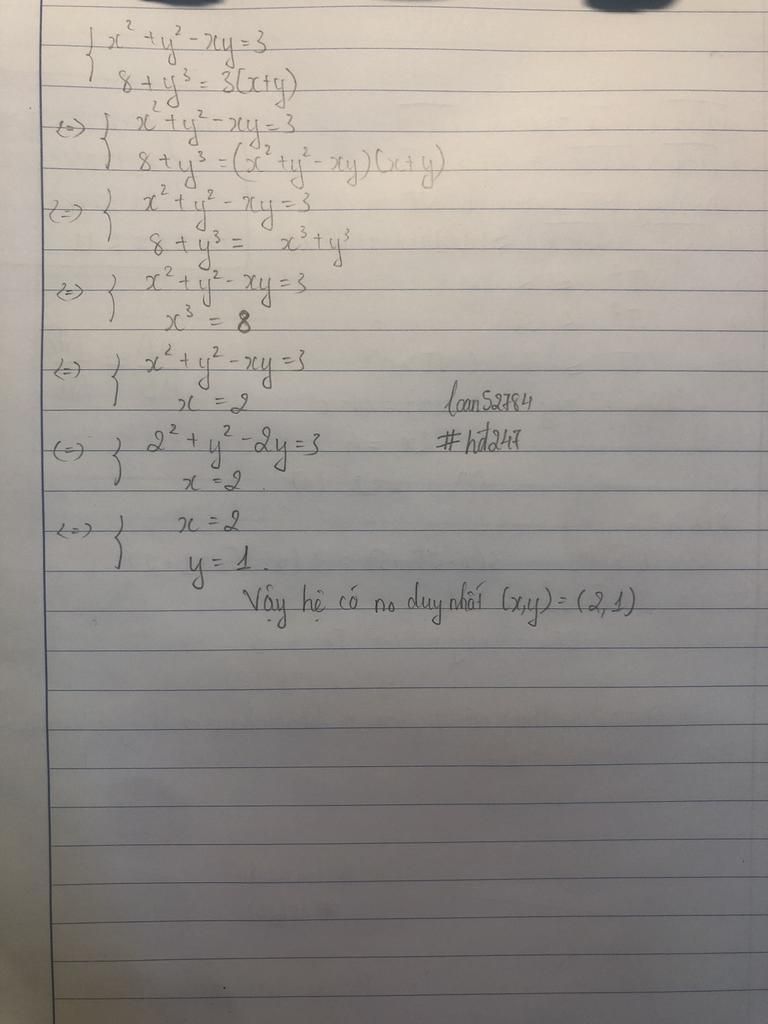 { x² + y² - xy = 3
8 + y³ = 3(x+y)
<=> { x² + y² - xy = 3
8 + y³ = (x² + y² - xy)(x+y)
<=> { x² + y² - xy = 3
8 + y³ = x³ + y³
<=> { x² + y² - xy = 3
x³ = 8
<=> { x² + y² - xy = 3
x = 2
loan52784
<=> { 2² + y² - 2y = 3
#hđ247
x = 2
<=> { x = 2
y = 1.
Vậy hệ có no duy nhất (x,y) = (2,1)